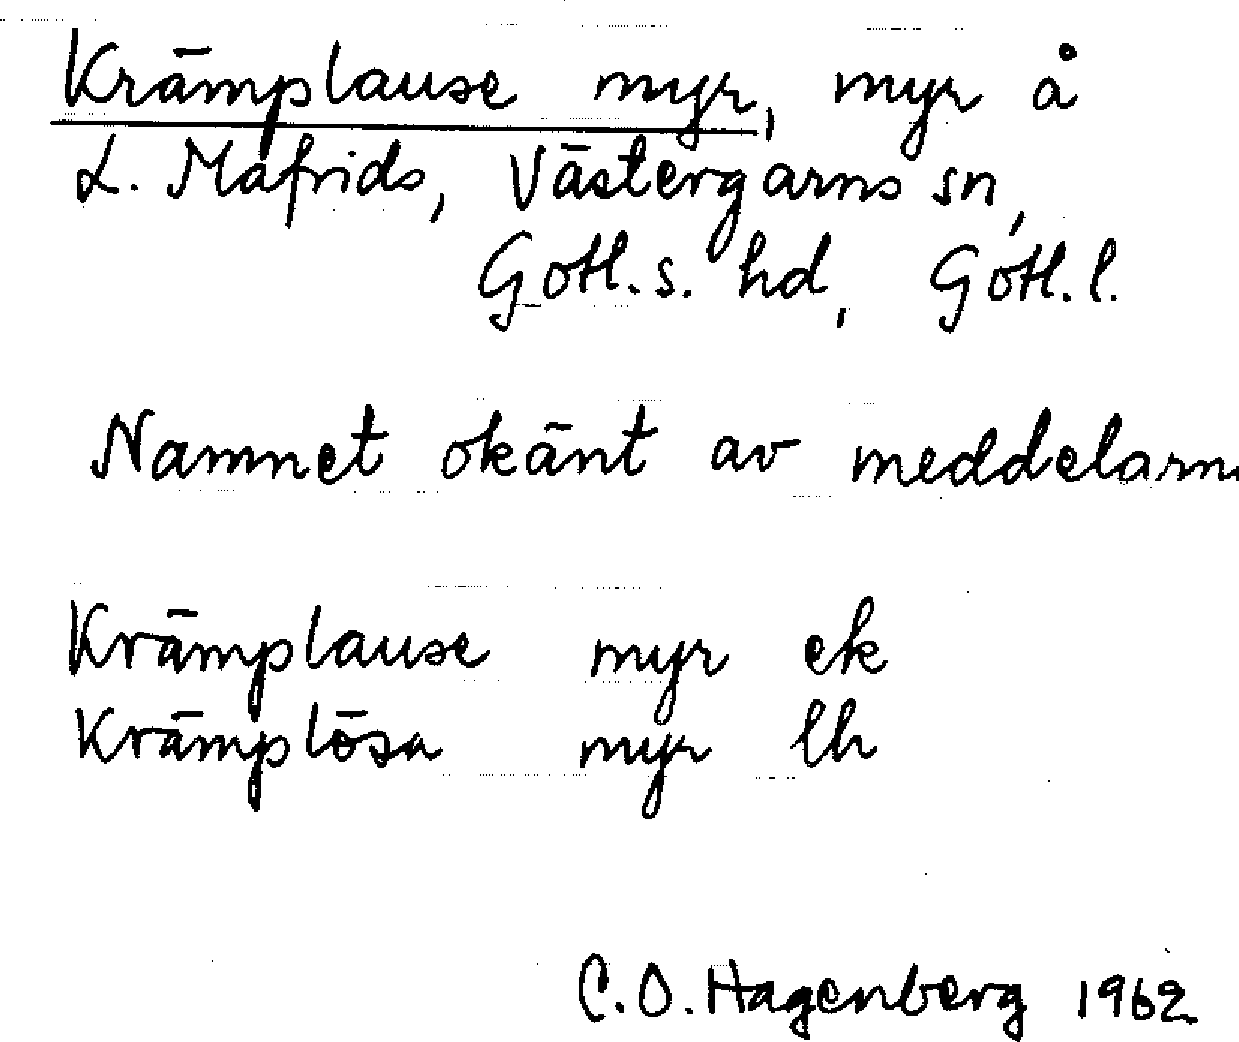 Krämplause myr, myr å
L. Mafrids, Västergarns sn,
Gotl. s. hd, Gotl. l.
Namnet okänt av meddelarna
Krämplause myr ek
Krämplösa myr lh
C. O. Hagenberg 1962